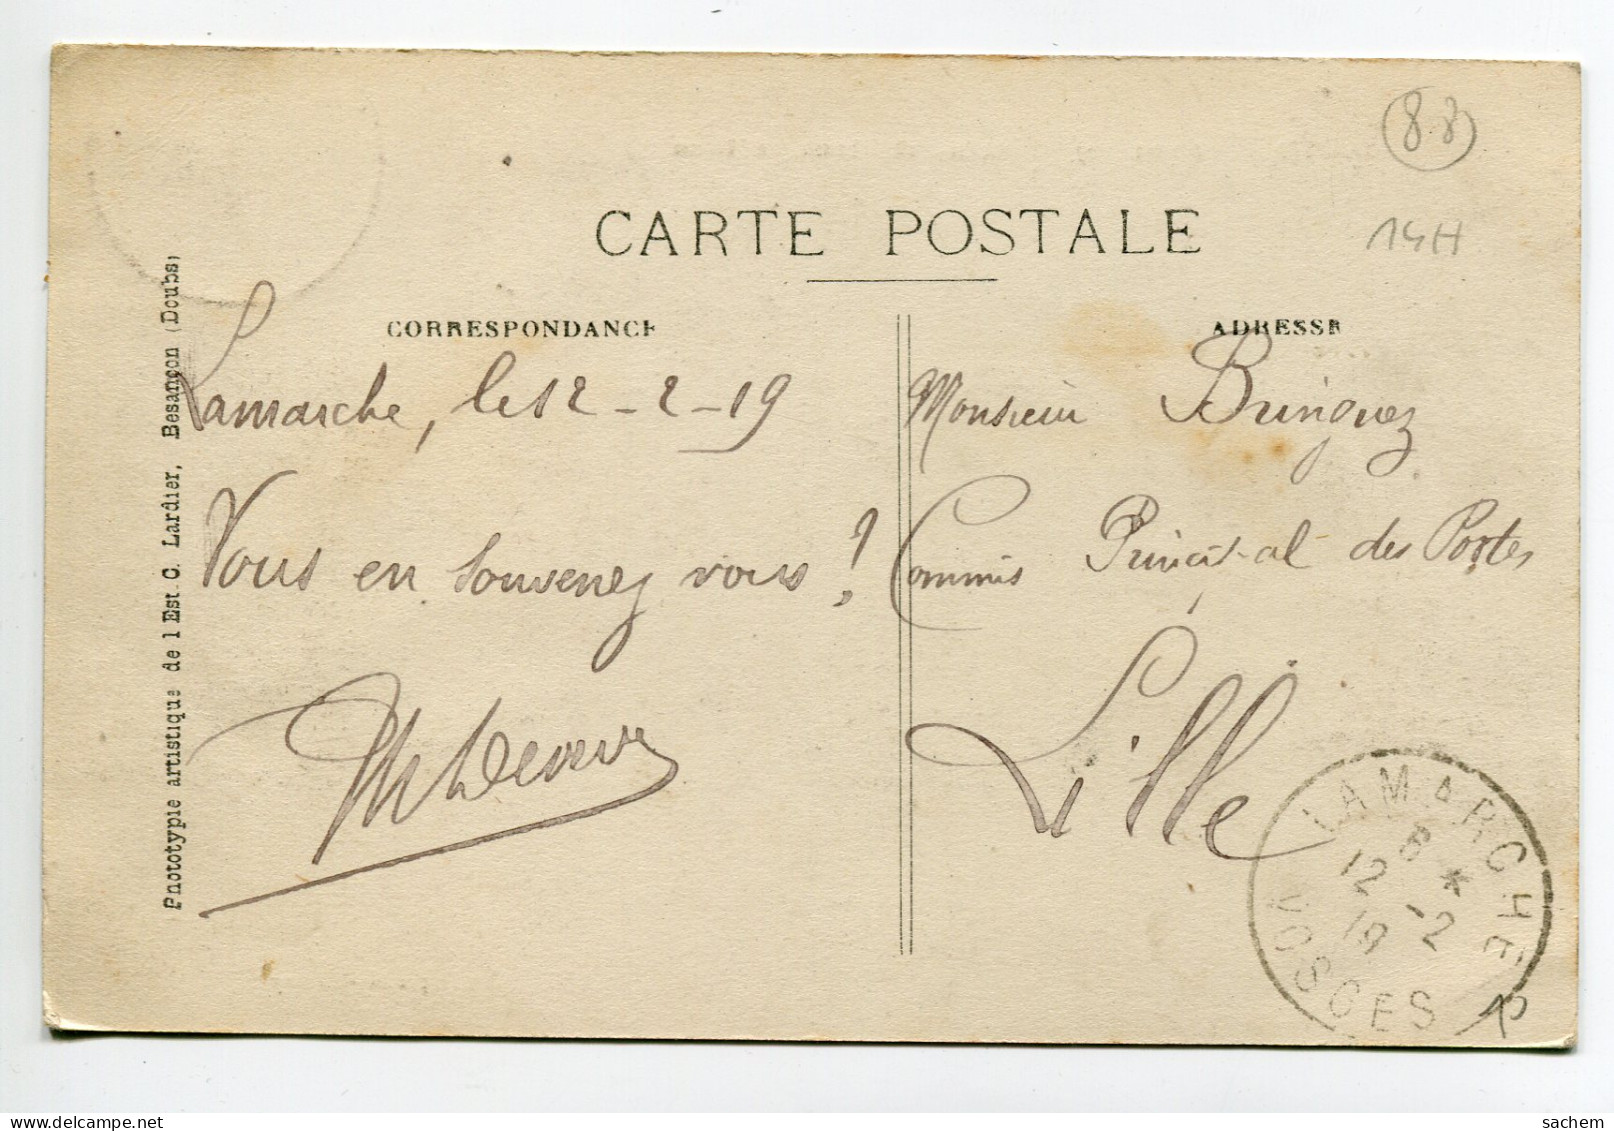 88
14H
CARTE POSTALE
CORRESPONDANCE
ADRESSE
Phototypie artistique de l Est. C. Lardier, Besançon (Doubs)
Lamarche, le 12-2-19
Vous en souvenez vous ?
Monsieur Bringuez
Commis Principal des Postes
Lille
LAMARCHE
8 *
12 -2
19
VOSGES
sachem
delcampe.net